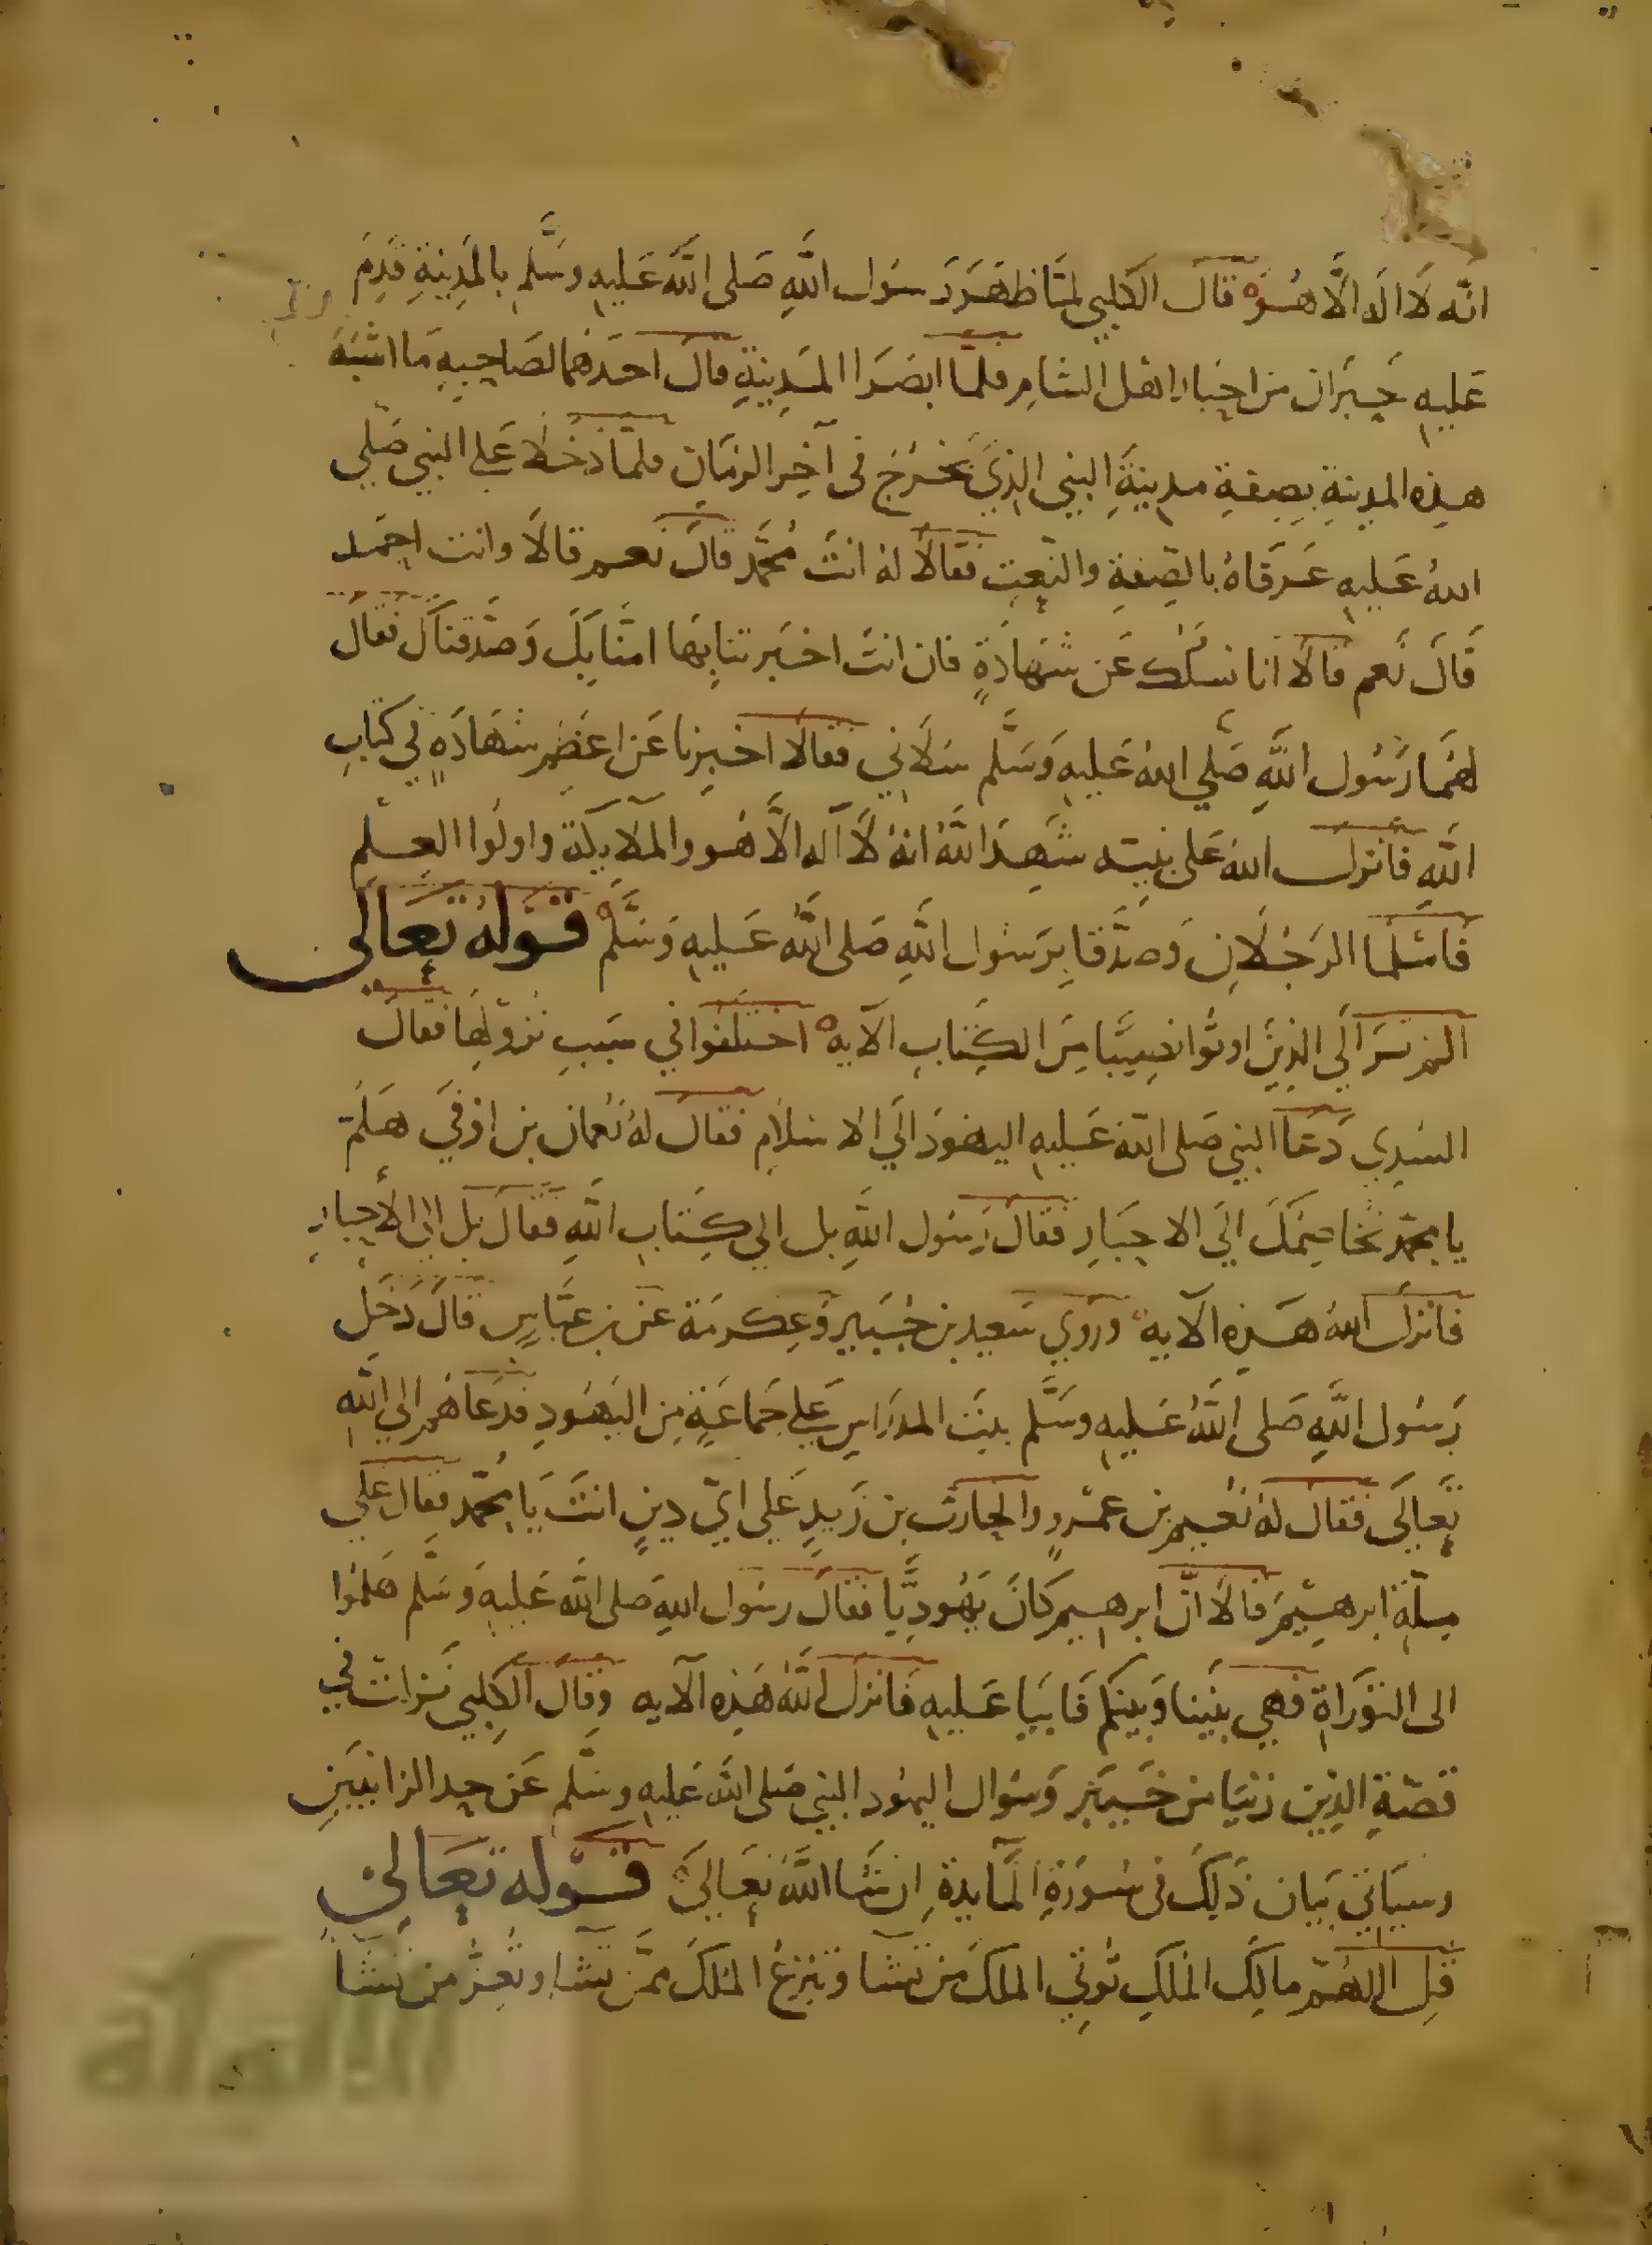 انّه لَا اله الَّا هُوَ قال الكلبي لمَّا ظهَرَ رَسُول اللَّهِ صَلى اللَّه عَليهِ وسَلَّم بالمَدِينةِ قَدِمَ
عَليهِ حَبرَان من احبار اهل الشام فلمّا ابصَرَا المَدِينةِ قال احَدهُما لصَاحِبهِ مَا اشبَهَ
هذه المدينةِ بصِفةِ مدينةِ النبي الذِي يخرُجُ فى آخِر الزمَان فلمّا دَخَلَا عَلى النبي صَلَّى
اللهُ عَليهِ عَرَفاهُ بالصِفةِ والنّعتِ فقالَا لهُ انتَ مُحَّمد قال نعم قالَا وانت احمد
قَال نَعم قالَا انا نسلُك عَن شهَادَةٍ فان انتَ اخبَرتنا بهَا امَنّا بِكَ وَصَدّقناكَ فقال
لهُمَا رَسُول اللَّهِ صَلَّى اللهُ عَليهِ وَسَلَّم سَلَاني فقالَا اخبِرنا عَن اعظم شهَادَهٍ في كتابِ
اللَّهِ فأنزل اللهُ عَلى نبيّه شَهِدَ اللَّهُ انهُ لَا اله الَّا هُو والمَلايكة واولُوا العِلمِ
فأسلما الرَجُلَانِ وَصدَّقا بِرَسُول اللَّهِ صَلى اللَّه عَليهِ وَسَلَّم قولهُ تَعَالَى
الم ترَ اِلَى الذِينَ اوتُوا نصِيبًا مِنَ الكِتابِ الآيه اختلفوا في سَببِ نزولِهَا فقال
السُدِي دَعَا النبي صَلى اللَّهُ عَليهِ اليهودَ الَى الاسلَامِ فقال لهُ نُعمان بن اوفيَ هَلُمّ
يا محمّد نخاصِمكَ الَى الاحبَارِ فقال رَسُول اللَّهِ بل الى كِتابِ اللَّهِ فقال بل الى الأحبارِ
فأنزل اللهُ هَذِهِ الآيه وروي سَعيد بن جُبَيرٍ وَعِكرمَة عَن بن عبَّاسٍ قال دَخَل
رَسُول اللَّهِ صَلى اللَّهُ عَليهِ وسَلَّم بيتَ المدرَاسِ عَلى جَمَاعَةٍ مِن اليَهُودِ فدعَاهُم الى اللَّهِ
تَعالَى فقال لهُ نُعيم بن عَمروٍ والحَارث بن زَيدٍ عَلى ايّ دينٍ انتَ يَا محمّد فقال عَلى
مِلّة ابرهيمَ قالَا انّ ابرهيم كَانَ يَهُودِيًّا فقالَ رسُول اللهِ صَلى اللَّه عَليهِ وَسَلَّم هَلمُوا
الى التورَاةِ فهي بيننا وَبينكم فأبيَا عَليهِ فأنزل اللَّه هَذِه الآيه وقال الكلبي نزلت في
قصّةِ الذين زنيَا من خَيبَر وَسُوال اليهُود النبي صَلى اللَّه عَليهِ وسَلَّم عَن حدِ الزانيَينِ
وسيَاتي بَيان ذَلِكَ فى سُورَةِ المَايدةِ ان شَا اللَّهُ تَعالَى قوله تَعَالَى
قل اللهُمّ مالِكَ المُلكِ تُوتي الملكَ من تشَا وتنزعُ المُلكَ ممَّن تشَا وتُعِزُّ من تشَا